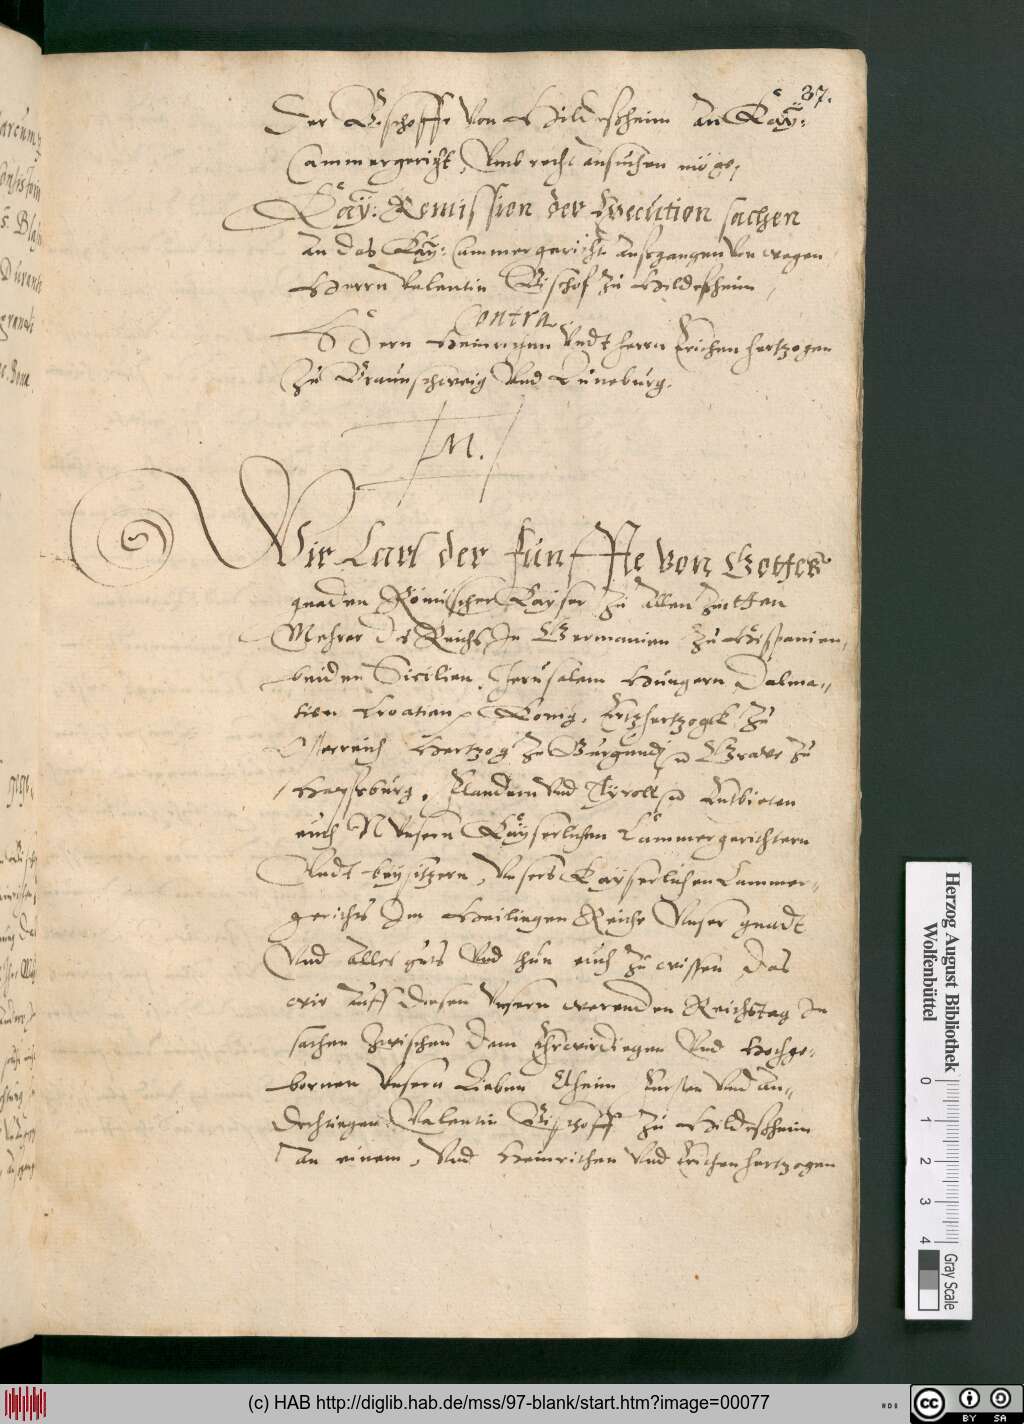 37.
Der Bischoffe von Hildeßheim an Kay:
Cammergericht, Vmb recht ansuchen möge,
Kaÿ: Remission der Execution sachen
an das Kaÿ: Cammergericht außgangen von wegen
Herrn Valentin Bischof zu Hildeßheim,
Contra
Hern Heinrichen Vndt herrn Erichen hertzogen
zu Braunschweig Vnd Lüneburg.
N.
Wir Carl der fünffte von Gottes
gnaden Römischer Kayser zu allen zeitten
Mehrer des Reichs, In Germanien zu Hispanien,
beiden Sicilien, Jerusalem Hungern Dalma-
tien Croatien König, Ertzhertzogk zu
Osterreich Hertzog zu Burgundj Graue zu
Hapsburg, Flandern Vnd Tyroll Entbieten
euch N Vnsern Kayserlichen Cammergerichtern
Vndt beysitzern, Vnsers Kayserlichen Cammer-
gerichts Im Heiligen Reiche Vnser gnadt
Vnd alles guts Vnd thun euch zu wissen das
wir auff diesen Vnsern werenden Reichstag In
sachen zwischen dem Ehrwirdiegen Vnd Hochge-
bornen Vnsern Lieben Oheim Fursten Vnd an-
dechtiegen Valentin Bischoff zu Hildeßheim
an einem, Vnd Heinrichen Vnd Erichen hertzogen
Herzog August Bibliothek
Wolfenbüttel
0 1 2 3 4
Gray Scale
(c) HAB http://diglib.hab.de/mss/97-blank/start.htm?image=00077
HAB
cc BY SA